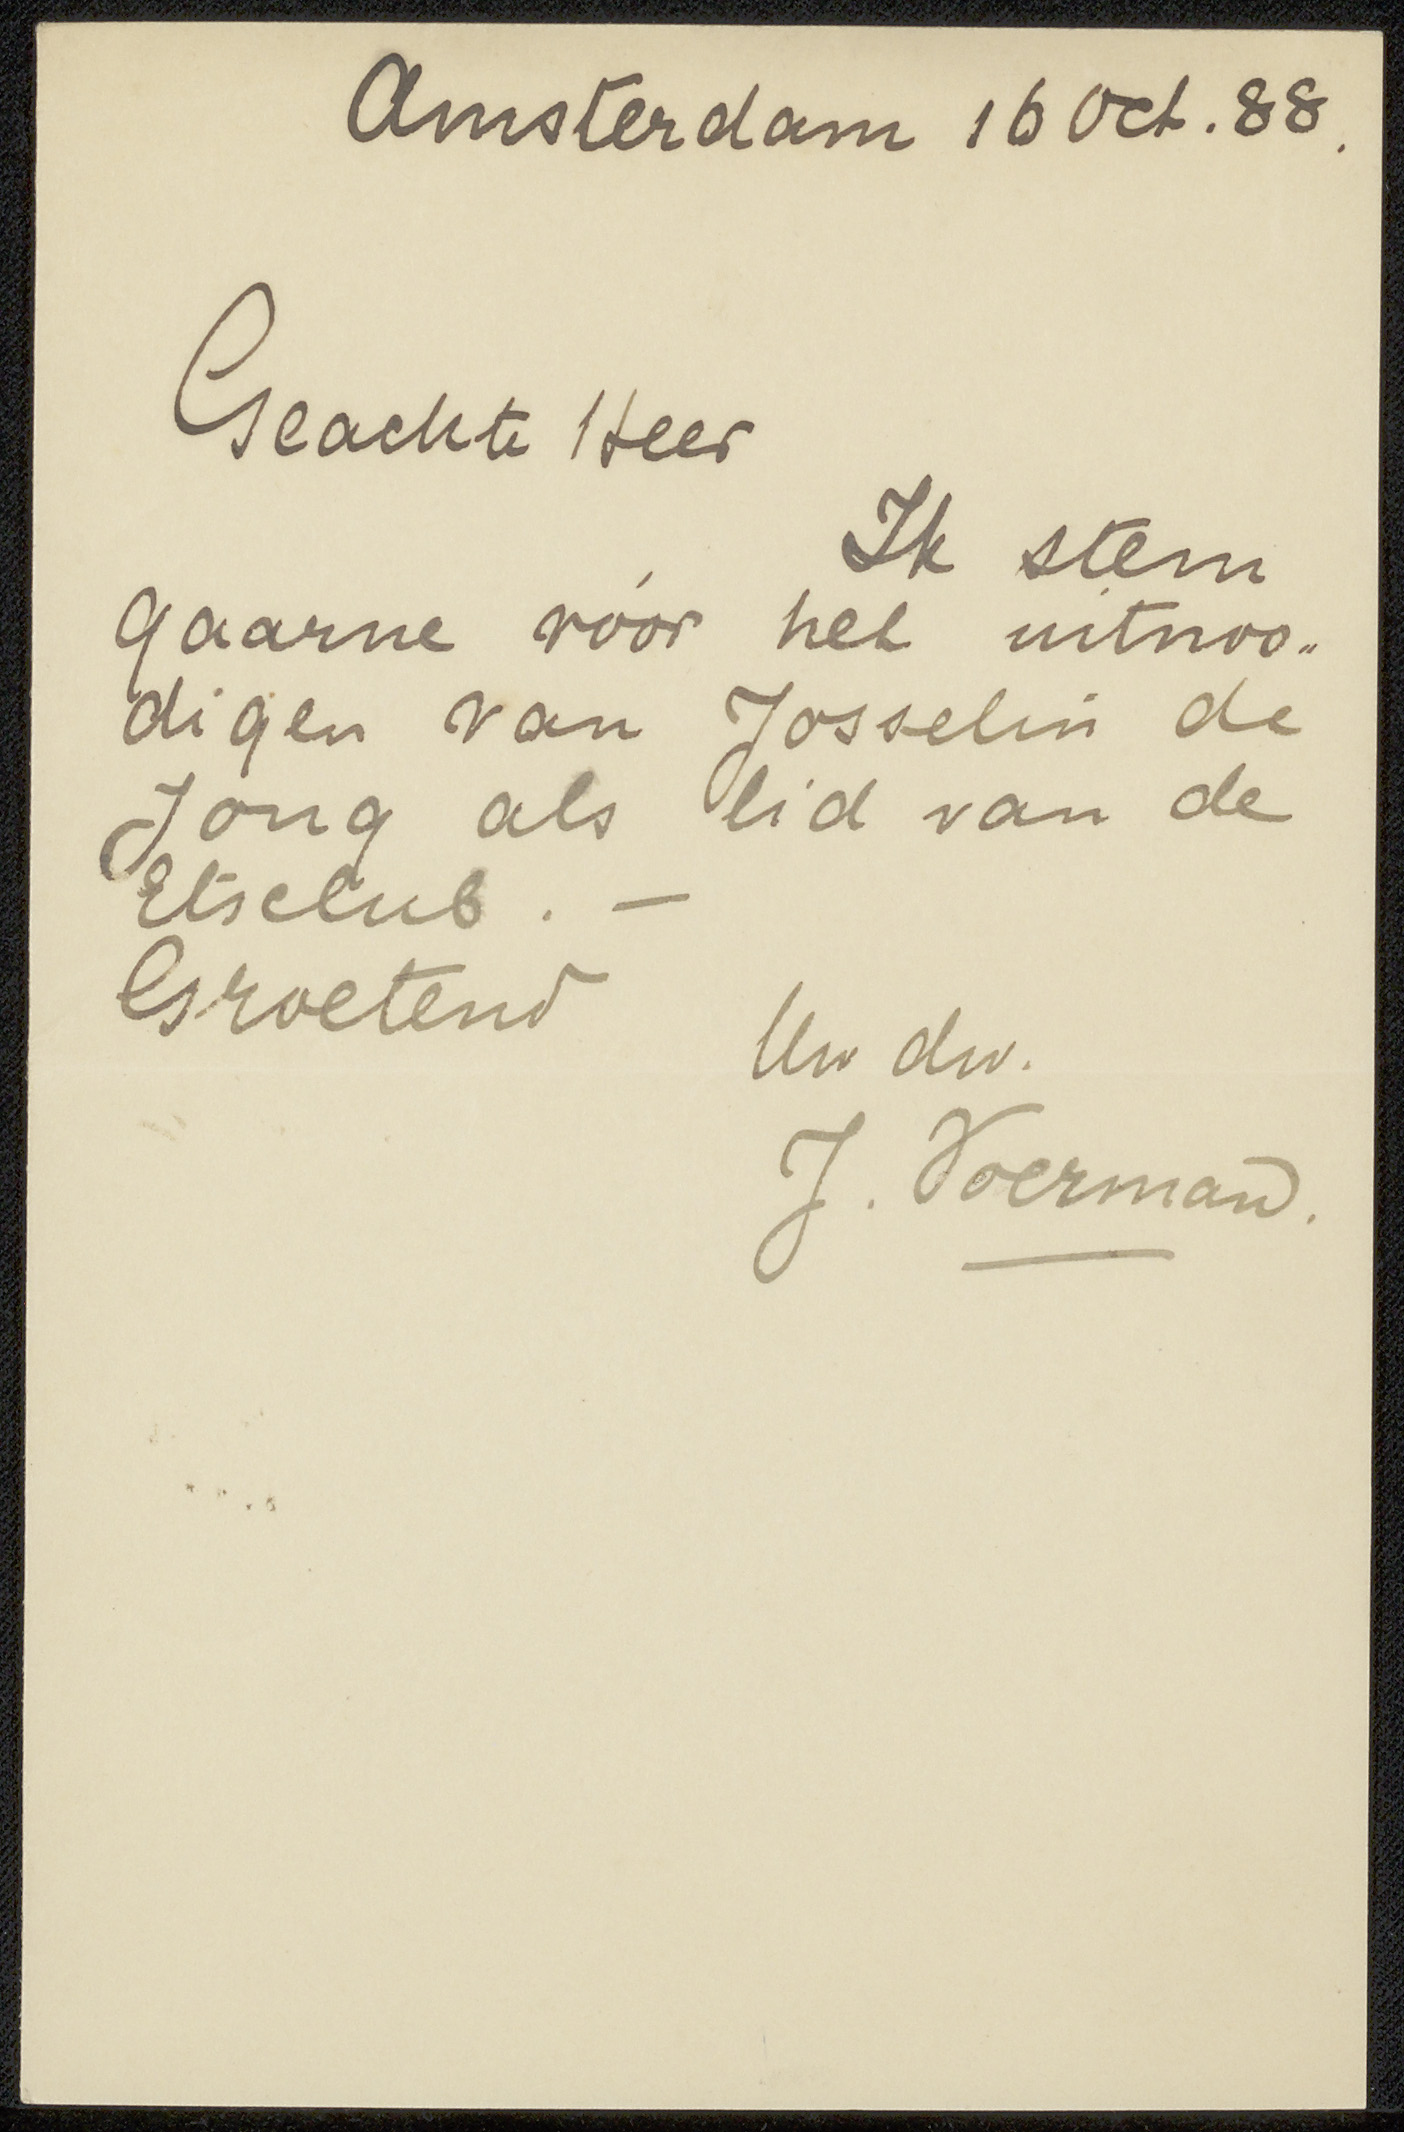 Amsterdam 16 Oct. 88.
Geachte Heer
Ik stem
gaarne vóór het uitnoo„
digen van Josselin de
Jong als lid van de
Etsclub. —
Groetend
Uw dw.
J. Voerman.